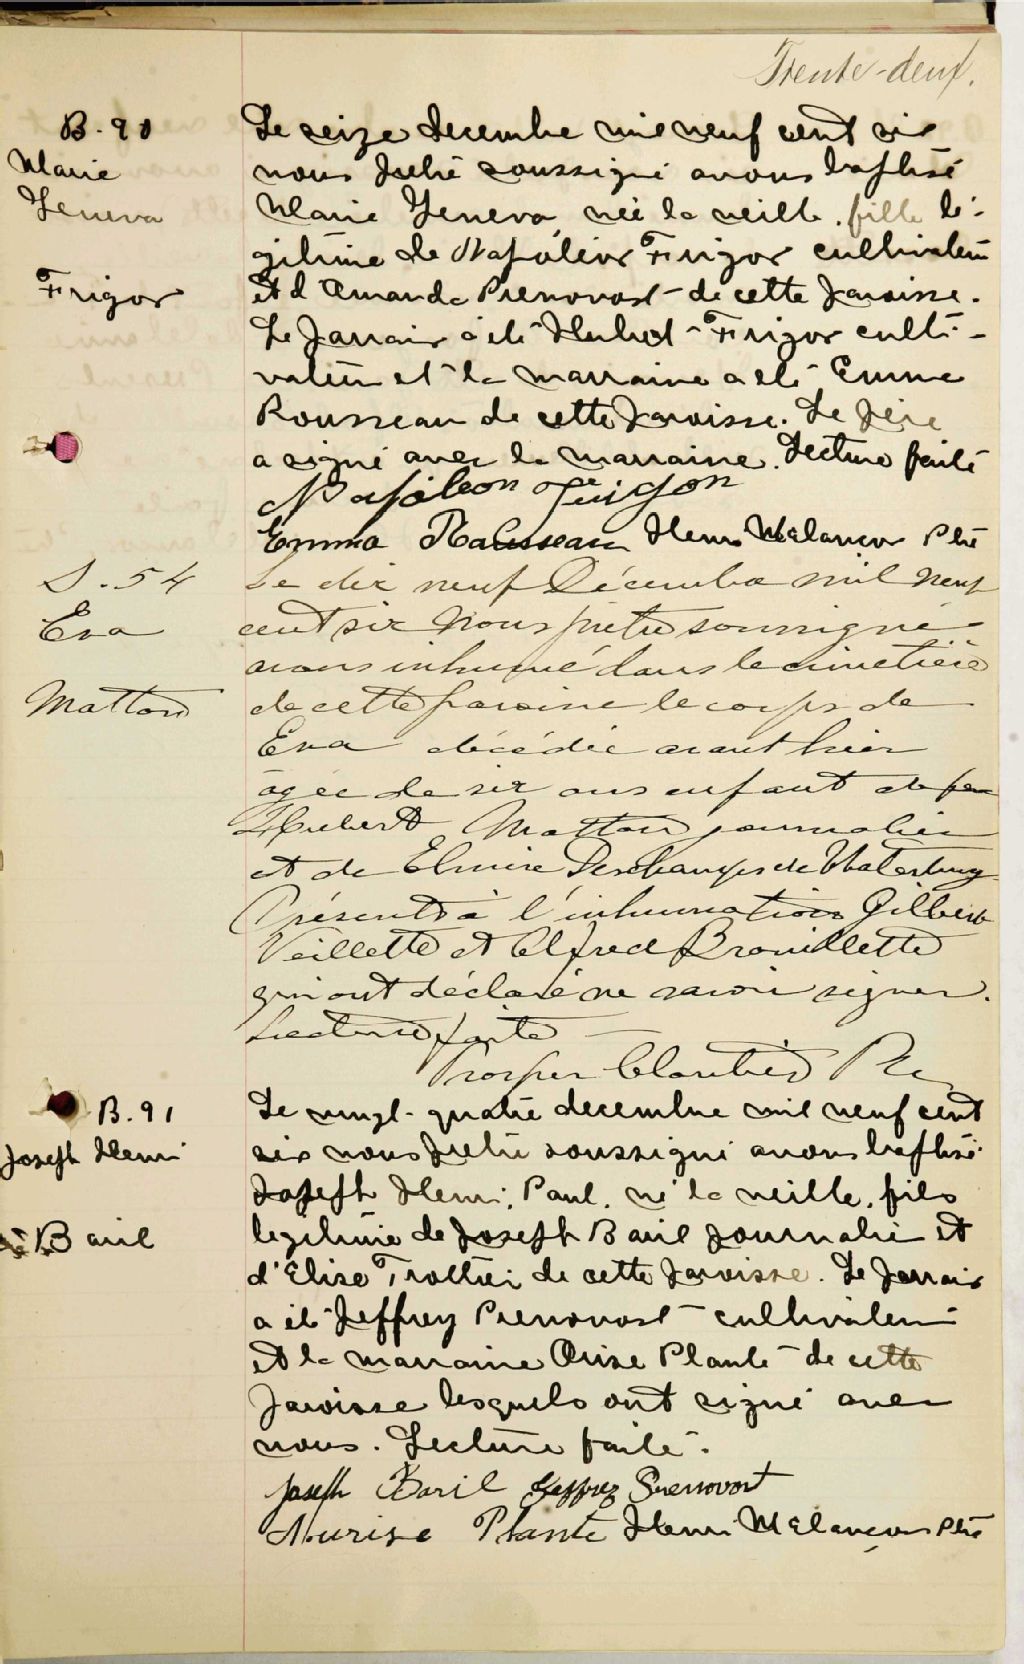 Trente-deux.
B. 90
Marie
Geneva
Frigon
Le seize decembre mil neuf cent six
nous prêtre soussigné avons baptisé
Marie Geneva, née la veille, fille lé-
gitime de Napoléon Frigon cultivateur
et d'Amanda Prenovost de cette paroisse.
Le parrain a été Hubert Frigon culti-
vateur et la marraine a été Emma
Rousseau de cette paroisse. Le père
a signé avec la marraine. Lecture faite
Napoléon Frigon
Emma Rousseau Henri Melançon Ptre
S. 54
Eva
Matton
Le dix neuf Décembre mil neuf
cent six Nous prêtre soussigné
avons inhumé dans le cimetière
de cette paroisse le corps de
Eva décédée avant hier
âgée de six ans enfant de feu
Hubert Matton journalier
et de Elmire Deschamps de Waterbury
Présents à l'inhumation Gilbert
Veillette et Alfred Brouillette
qui ont déclaré ne savoir signer.
Lecture faite
Prosper Cloutier Ptre
B. 91
Joseph Henri
Baril
Le vingt-quatre decembre mil neuf cent
six nous prêtre soussigné avons baptisé
Joseph Henri, Paul, né la veille, fils
legitime de Joseph Baril journalier et
d'Elise Trottier de cette paroisse. Le parrain
a été Jeffrey Prenovost cultivateur
et la marraine Orise Plante de cette
paroisse lesquels ont signé avec
nous. Lecture faite.
Joseph Baril Jeffrey Prenovost
Aurise Plante Henri Melançon Ptre